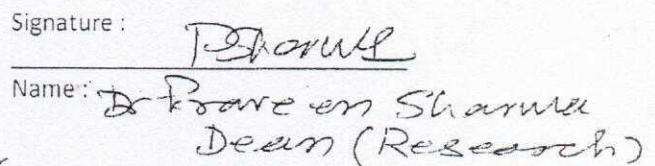 Signature : PSharma
Name : Dr Praveen Sharma
Dean (Research)